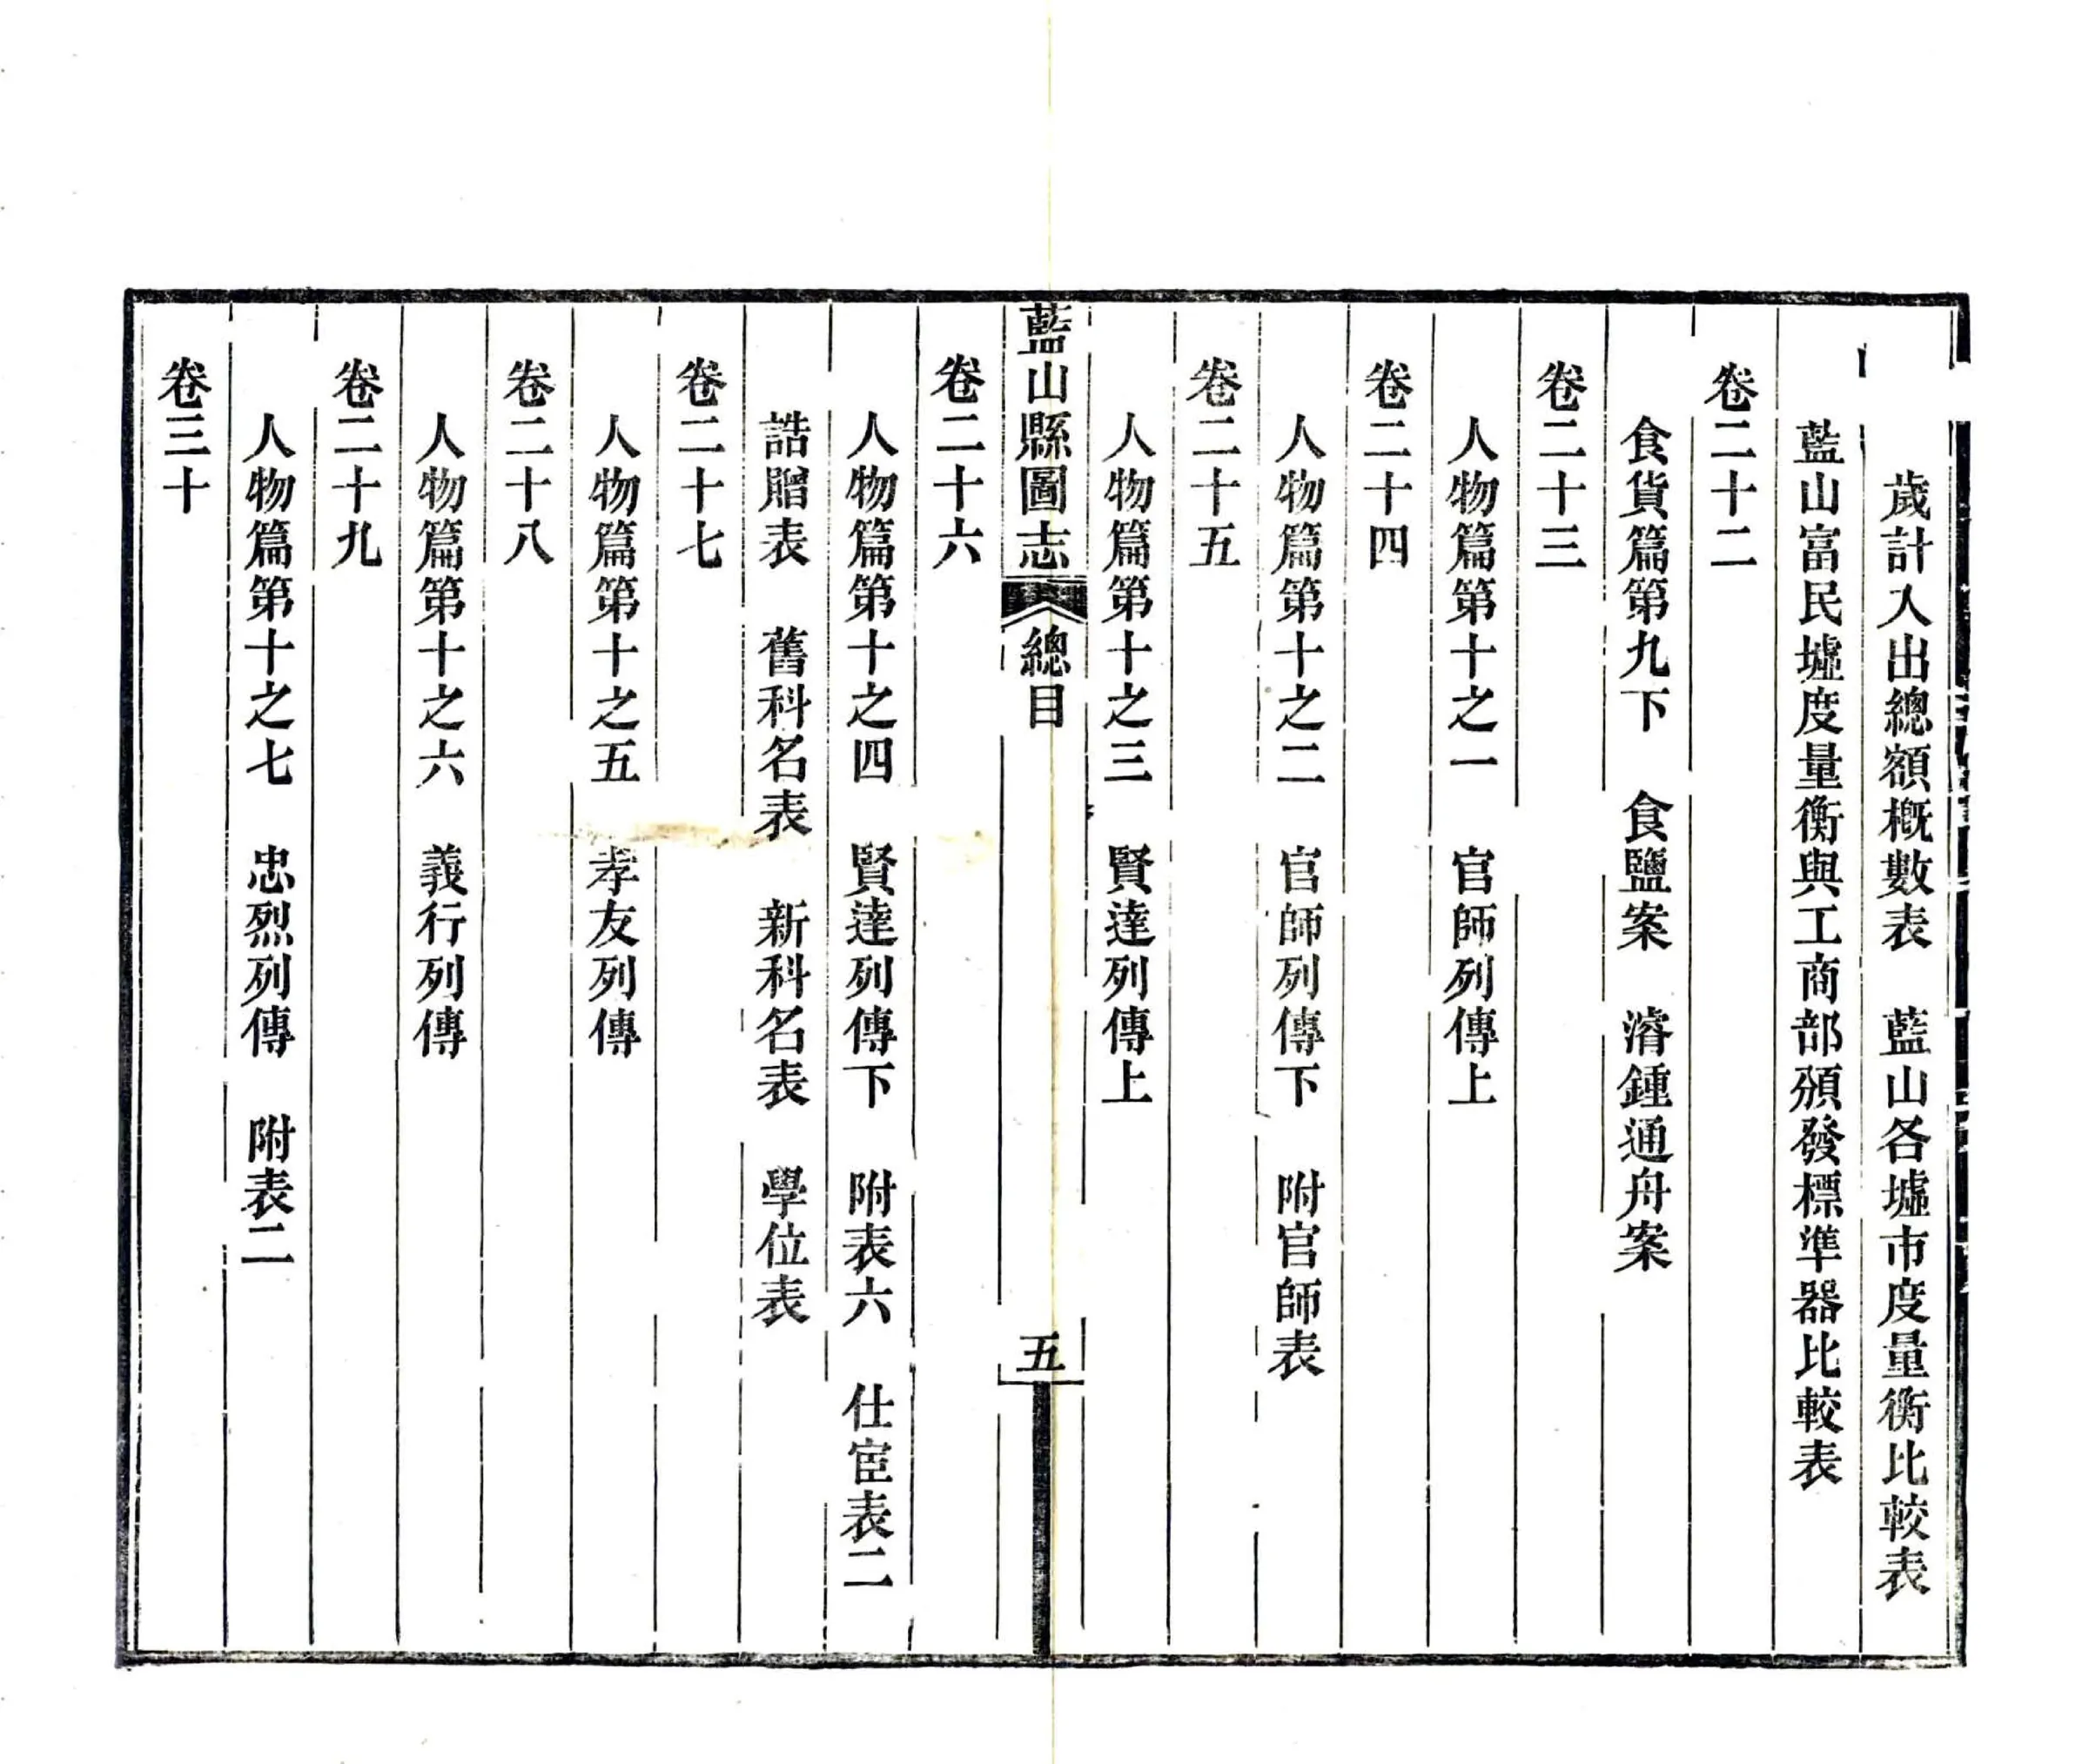 歲計入出總額概數表　藍山各墟市度量衡比較表
藍山富民墟度量衡與工商部頒發標準器比較表
卷二十二
食貨篇第九下　食鹽案　濬鍾通舟案
卷二十三
人物篇第十之一　官師列傳上
卷二十四
人物篇第十之二　官師列傳下　附官師表
卷二十五
人物篇第十之三　賢達列傳上
藍山縣圖志　總目　五
卷二十六
人物篇第十之四　賢達列傳下　附表六　仕宦表二
誥贈表　舊科名表　新科名表　學位表
卷二十七
人物篇第十之五　孝友列傳
卷二十八
人物篇第十之六　義行列傳
卷二十九
人物篇第十之七　忠烈列傳　附表二
卷三十